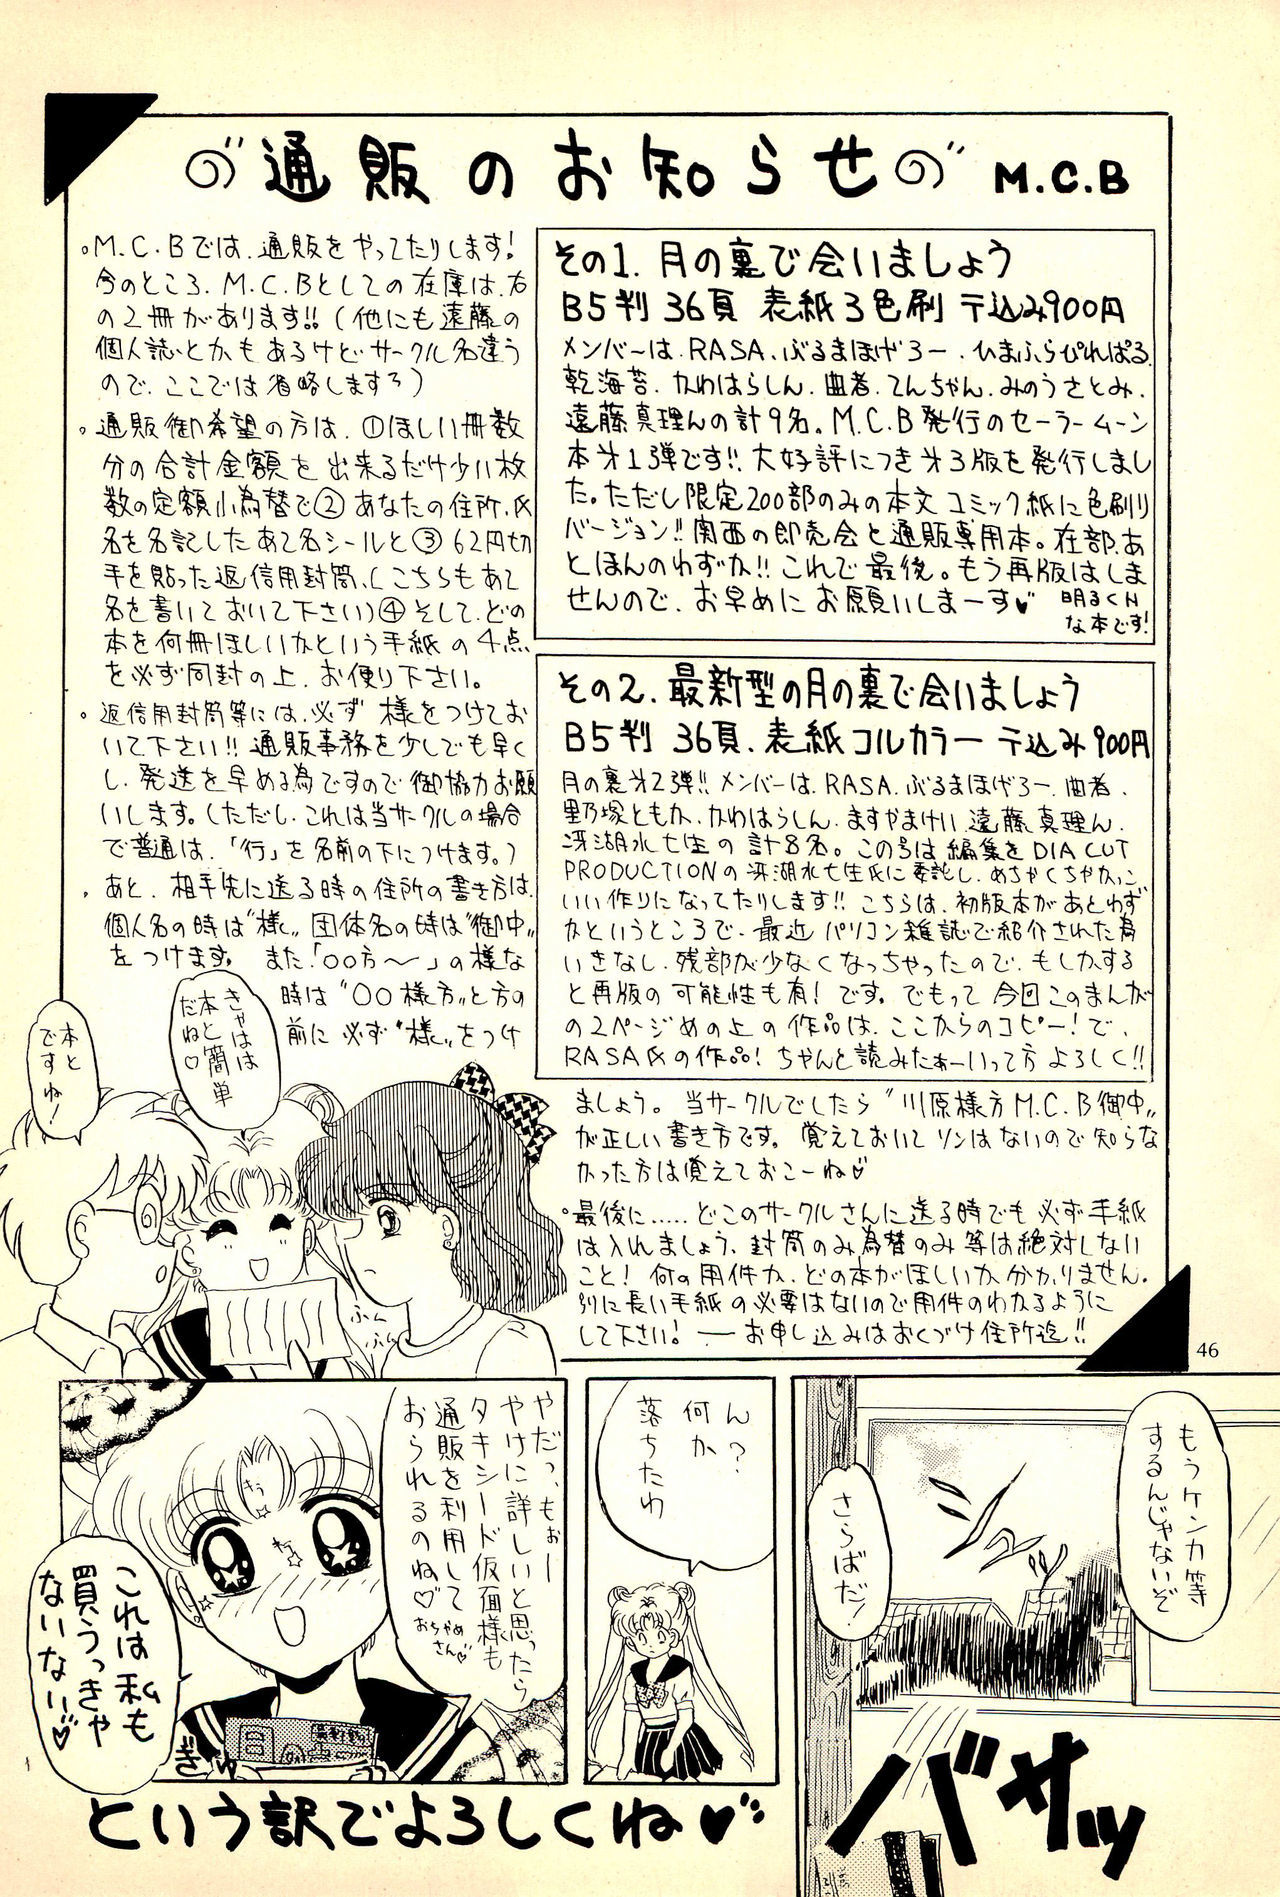 通販のお知らせ M.C.B
。M.C.Bでは、通販をやってたりします!
今のところ、M.C.Bとしての在庫は、右
の2冊があります!!(他にも遠藤の
個人誌とかもあるけどサークル名違う
ので、ここでは省略しますろ)
。通販御希望の方は、①ほしい冊数
分の合計金額を出来るだけ少い枚
数の定額小為替で②あなたの住所、氏
名を名記したあて名シールと③62円切
手を貼った返信用封筒、(こちらもあて
名を書いておいて下さい)④そして、どの
本を何冊ほしいかという手紙の4点
を必ず同封の上、お便り下さい。
。返信用封筒等には、必ず様をつけてお
いて下さい!!通販事務を少しでも早く
し、発送を早める為ですので御協力お願
いします。(ただし、これは当サークルの場合
で普通は、「行」を名前の下につけます。)
。あと、相手先に送る時の住所の書き方は、
個人名の時は“様”、団体名の時は“御中”
をつけます。また「○○方〜」の様な
時は“○○様方”と方の
前に必ず“様”をつけ
その1. 月の裏で会いましょう
B5判 36頁 表紙3色刷 〒込み900円
メンバーは、RASA、ぶるまほげろー、ひまふらぴれぱる、
乾海苔、かわはらしん、曲者、てんちゃん、みのうさとみ、
遠藤真理んの計9名。M.C.B発行のセーラームーン
本第1弾です!!大好評につき第3版を発行しまし
た。ただし限定200部のみの本文コミック紙に色刷り
バージョン!!関西の即売会と通販専用本。在部、あ
とほんのわずか!!これで最後。もう再版はしま
せんので、お早めにお願いしまーす♥
明るくH
な本です!
その2. 最新型の月の裏で会いましょう
B5判 36頁. 表紙フルカラー 〒込み900円
月の裏第2弾!!メンバーは、RASA、ぶるまほげろー、曲者、
里乃塚ともか、かわはらしん、ますやまけい、遠藤真理ん、
冴湖水七生の計8名。この号は編集をDIA CUT
PRODUCTIONの冴湖水七生氏に委託し、めちゃくちゃかっこ
いい作りになってたりします!!こちらは、初版本があとわず
かというところで、最近パソコン雑誌で紹介された為
いきなし、残部が少なくなっちゃったので、もしかする
と再版の可能性も有!です。でもって今回このまんが
の2ページめの上の作品は、ここからのコピー!で、
RASA氏の作品!ちゃんと読みたぁーいって方よろしく!!
ましょう。当サークルでしたら“川原様方M.C.B御中”
が正しい書き方です。覚えておいてソンはないので知らな
かった方は覚えておこーね♡
。最後に……どこのサークルさんに送る時でも必ず手紙
は入れましょう、封筒のみ為替のみ等は絶対しない
こと!何の用件か、どの本がほしいか分かりません。
別に長い手紙の必要はないので用件のわかるように
して下さい!――お申し込みはおくづけ住所迄!!
きゃはは
本と簡単
だね♡
本と
ですね!
ふん
ふん
46
もうケンカ等
するんじゃないぞ
さらばだ!
バサッ
ん?
何か
落ちたわ
やだっ、もぉー
やけに詳しいと思ったら
タキシード仮面様も
通販を利用して
おられるのね♡
おちゃめ
さん♡
きらっ
ぎゅ
これは私も
買うっきゃ
ないない♡
という訳でよろしくね♥